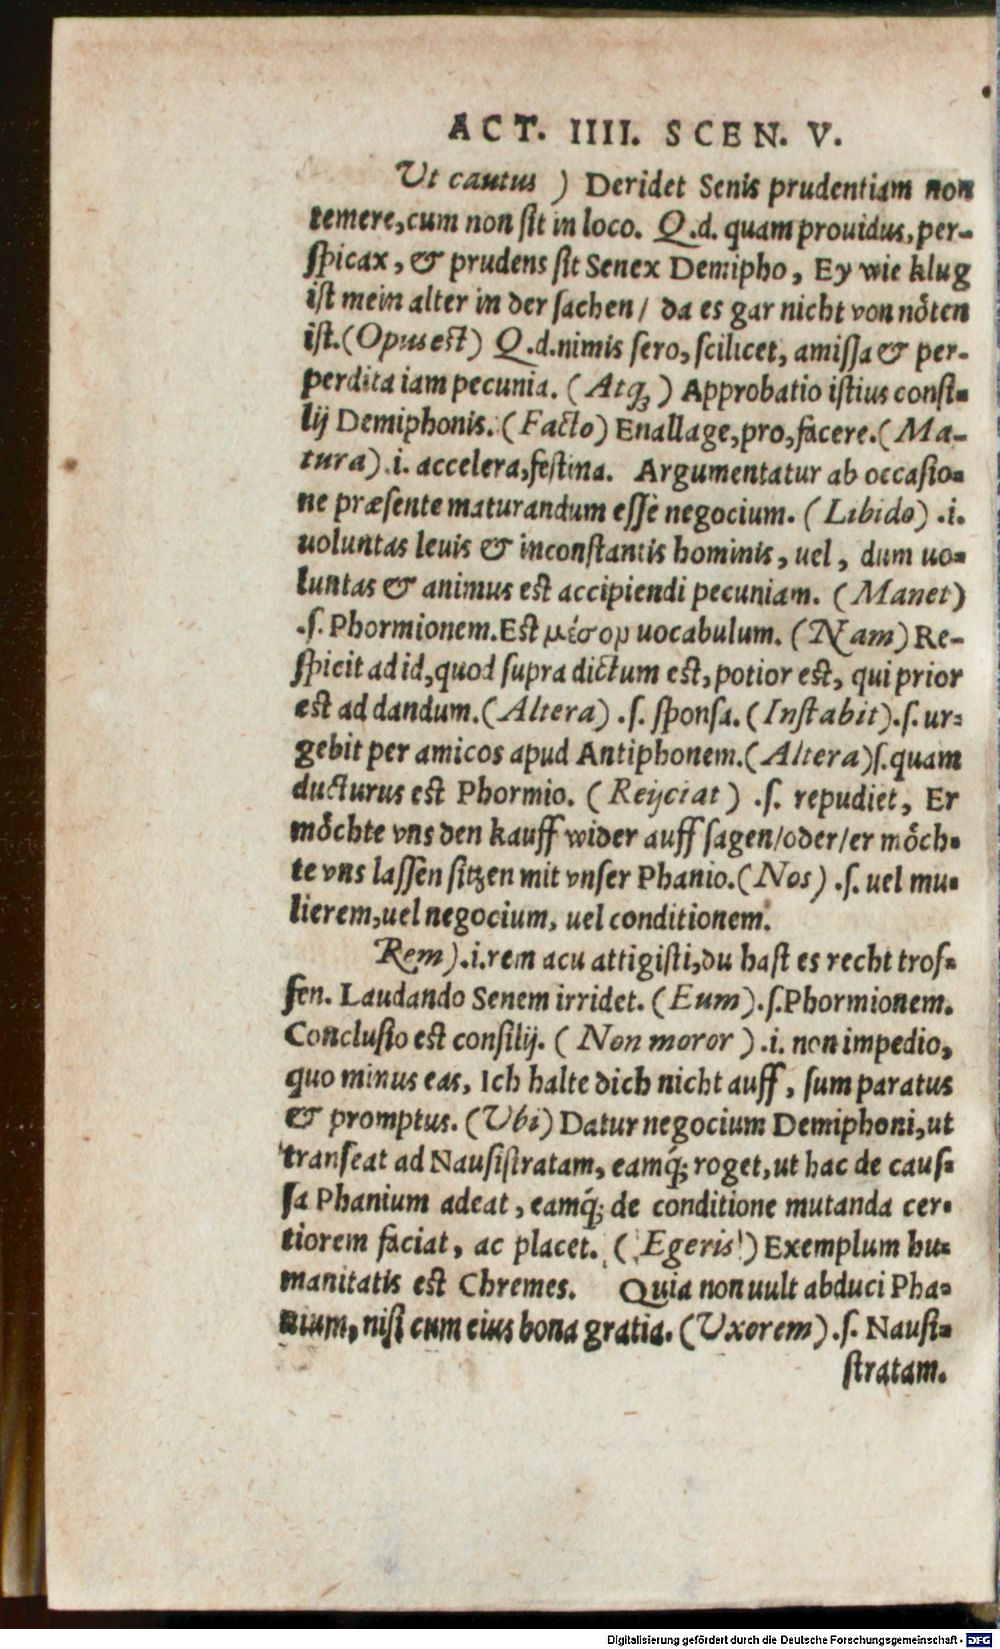 ACT. IIII. SCEN. V.
Ut cautus ) Deridet Senis prudentiam non
temere, cum non ſit in loco. Q.d. quam prouidus, per-
ſpicax, & prudens ſit Senex Demipho, Ey wie klug
iſt mein alter in der ſachen/ da es gar nicht von nöten
iſt.(Opus eſt) Q.d.nimis ſero, ſcilicet, amiſſa & per-
perdita iam pecunia. (Atq;) Approbatio iſtius conſi-
lij Demiphonis. (Facto) Enallage, pro, facere.(Ma-
tura).i. accelera, feſtina. Argumentatur ab occaſio-
ne præſente maturandum eſſe negocium. (Libido) .i.
uoluntas leuis & inconſtantis hominis, uel, dum uo-
luntas & animus eſt accipiendi pecuniam. (Manet)
.ſ. Phormionem. Eſt μέσομ uocabulum. (Nam) Re-
ſpicit ad id, quod ſupra dictum eſt, potior eſt, qui prior
eſt ad dandum.(Altera) .ſ. ſponſa. (Inſtabit).ſ. ur-
gebit per amicos apud Antiphonem.(Altera)ſ.quam
ducturus eſt Phormio. (Reijciat) .ſ. repudiet, Er
möchte vns den kauff wider auff ſagen/oder/er möch-
te vns laſſen ſitzen mit vnſer Phanio.(Nos) .ſ. uel mu-
lierem, uel negocium, uel conditionem.
Rem).i.rem acu attigiſti, du haſt es recht trof-
fen. Laudando Senem irridet. (Eum).ſ.Phormionem.
Concluſio eſt conſilij. (Non moror ).i. non impedio,
quo minus eas, Ich halte dich nicht auff, ſum paratus
& promptus. (Ubi) Datur negocium Demiphoni, ut
tranſeat ad Nauſiſtratam, eamq́; roget, ut hac de cauſ-
ſa Phanium adeat, eamq́; de conditione mutanda cer-
tiorem faciat, ac placet. (Egeris) Exemplum hu-
manitatis eſt Chremes. Quia non uult abduci Pha-
nium, niſi cum eius bona gratia. (Uxorem).ſ. Nauſi-
ſtratam.
Digitalisierung gefördert durch die Deutsche Forschungsgemeinschaft - DFG